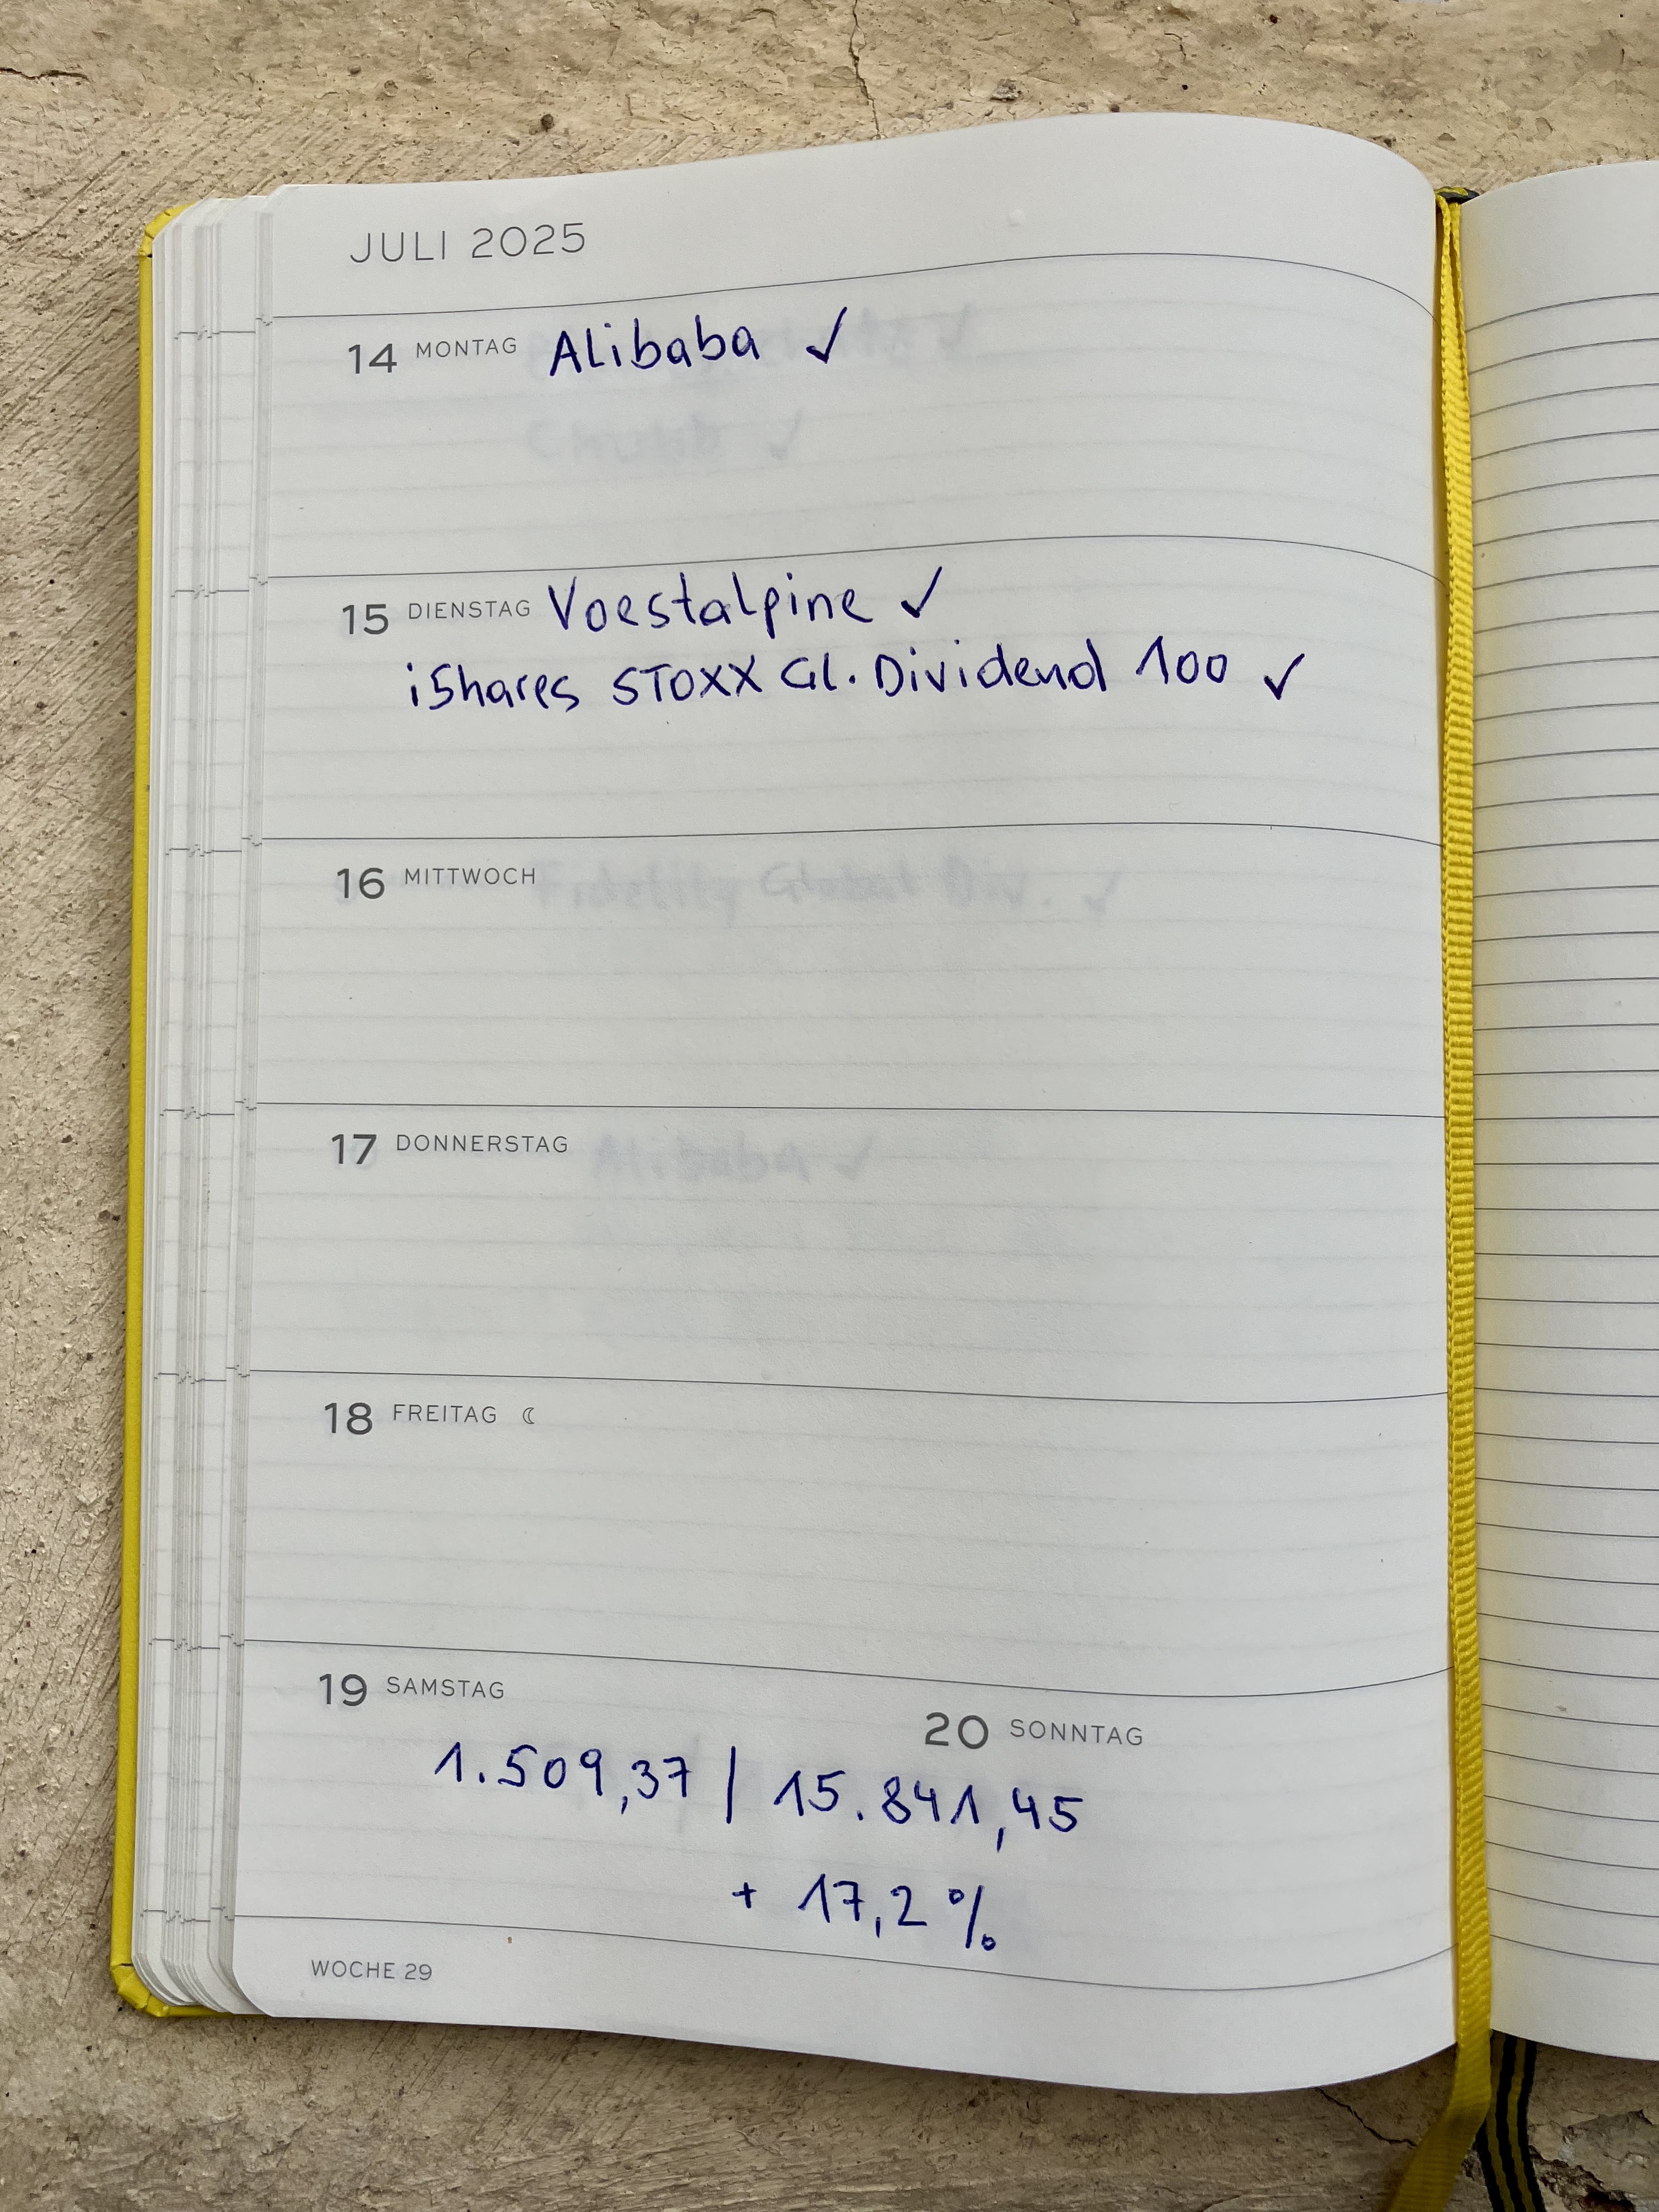 JULI 2025
14 MONTAG Alibaba ✓
Chubb ✓
15 DIENSTAG Voestalpine ✓
iShares STOXX Gl. Dividend 100 ✓
16 MITTWOCH Fidelity Global Div. ✓
17 DONNERSTAG Alibaba ✓
18 FREITAG ☾
19 SAMSTAG
20 SONNTAG
1.509,37 | 15.841,45
+ 17,2 %
WOCHE 29